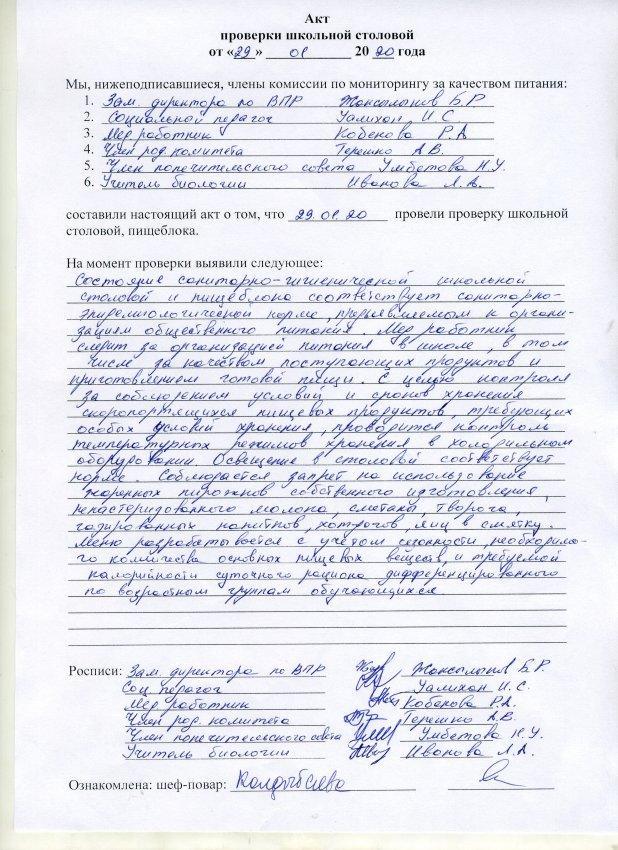 Акт
проверки школьной столовой
от «29» 01 2020 года
Мы, нижеподписавшиеся, члены комиссии по мониторингу за качеством питания:
1. Зам. директора по ВПР Жаксылыков Б.Р
2. Социальный педагог Уалихан И.С.
3. Мед работник Кобекова Р.А
4. Член род. комитета Терешко А.В.
5. Член попечительского совета Умбетова Н.У.
6. Учитель биологии Иванова Л.А.
составили настоящий акт о том, что 29.01.20 провели проверку школьной
столовой, пищеблока.
На момент проверки выявили следующее:
Состояние санитарно-гигиенической школьной
столовой и пищеблока соответствует санитарно-
эпидемиологической норме, предъявляемом к органи-
зациям общественного питания. Мед работник
следит за организацией питания в школе, в том
числе за качеством поступающих продуктов и
приготовлением готовой пищи. С целью контроля
за соблюдением условий и сроков хранения
скоропортящихся пищевых продуктов, требующих
особых условий хранения, проводится контроль
температурных режимов хранения в холодильном
оборудовании. Освещение в столовой соответствует
норме. Соблюдается запрет на использование
жаренных пирожков собственного изготовления,
непастеризованного молока, сметаны, творога,
газированных напитков, яиц в смятку.
Меню разрабатывается с учётом сезонности, необходимо-
го количества основных пищевых веществ, и требуемой
калорийности суточного рациона дифференцированного
по возрастным группам обучающихся
Росписи: Зам. директора по ВПР Жаксылыков Б.Р.
Соц педагог Уалихан И.С.
Мед работник Кобекова Р.А.
Член род. комитета Терешко А.В.
Член попечительского совета Умбетова Н.У.
Учитель биологии Иванова Л.А.
Ознакомлена: шеф-повар: